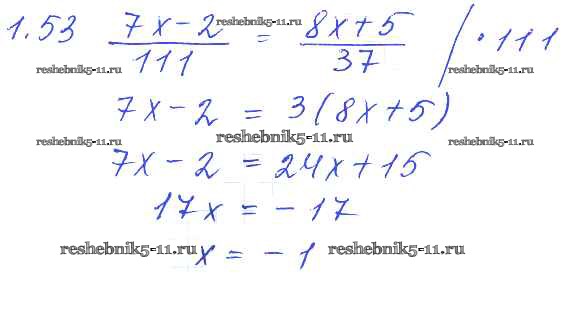 1.53 (7x-2)/111 = (8x+5)/37 / · 111
reshebnik5-11.ru
reshebnik5-11.ru reshebnik5-11.ru
7x - 2 = 3(8x+5)
reshebnik5-11.ru reshebnik5-11.ru reshebnik5-11.ru
7x - 2 = 24x+15
17x = - 17
reshebnik5-11.ru x = - 1 reshebnik5-11.ru